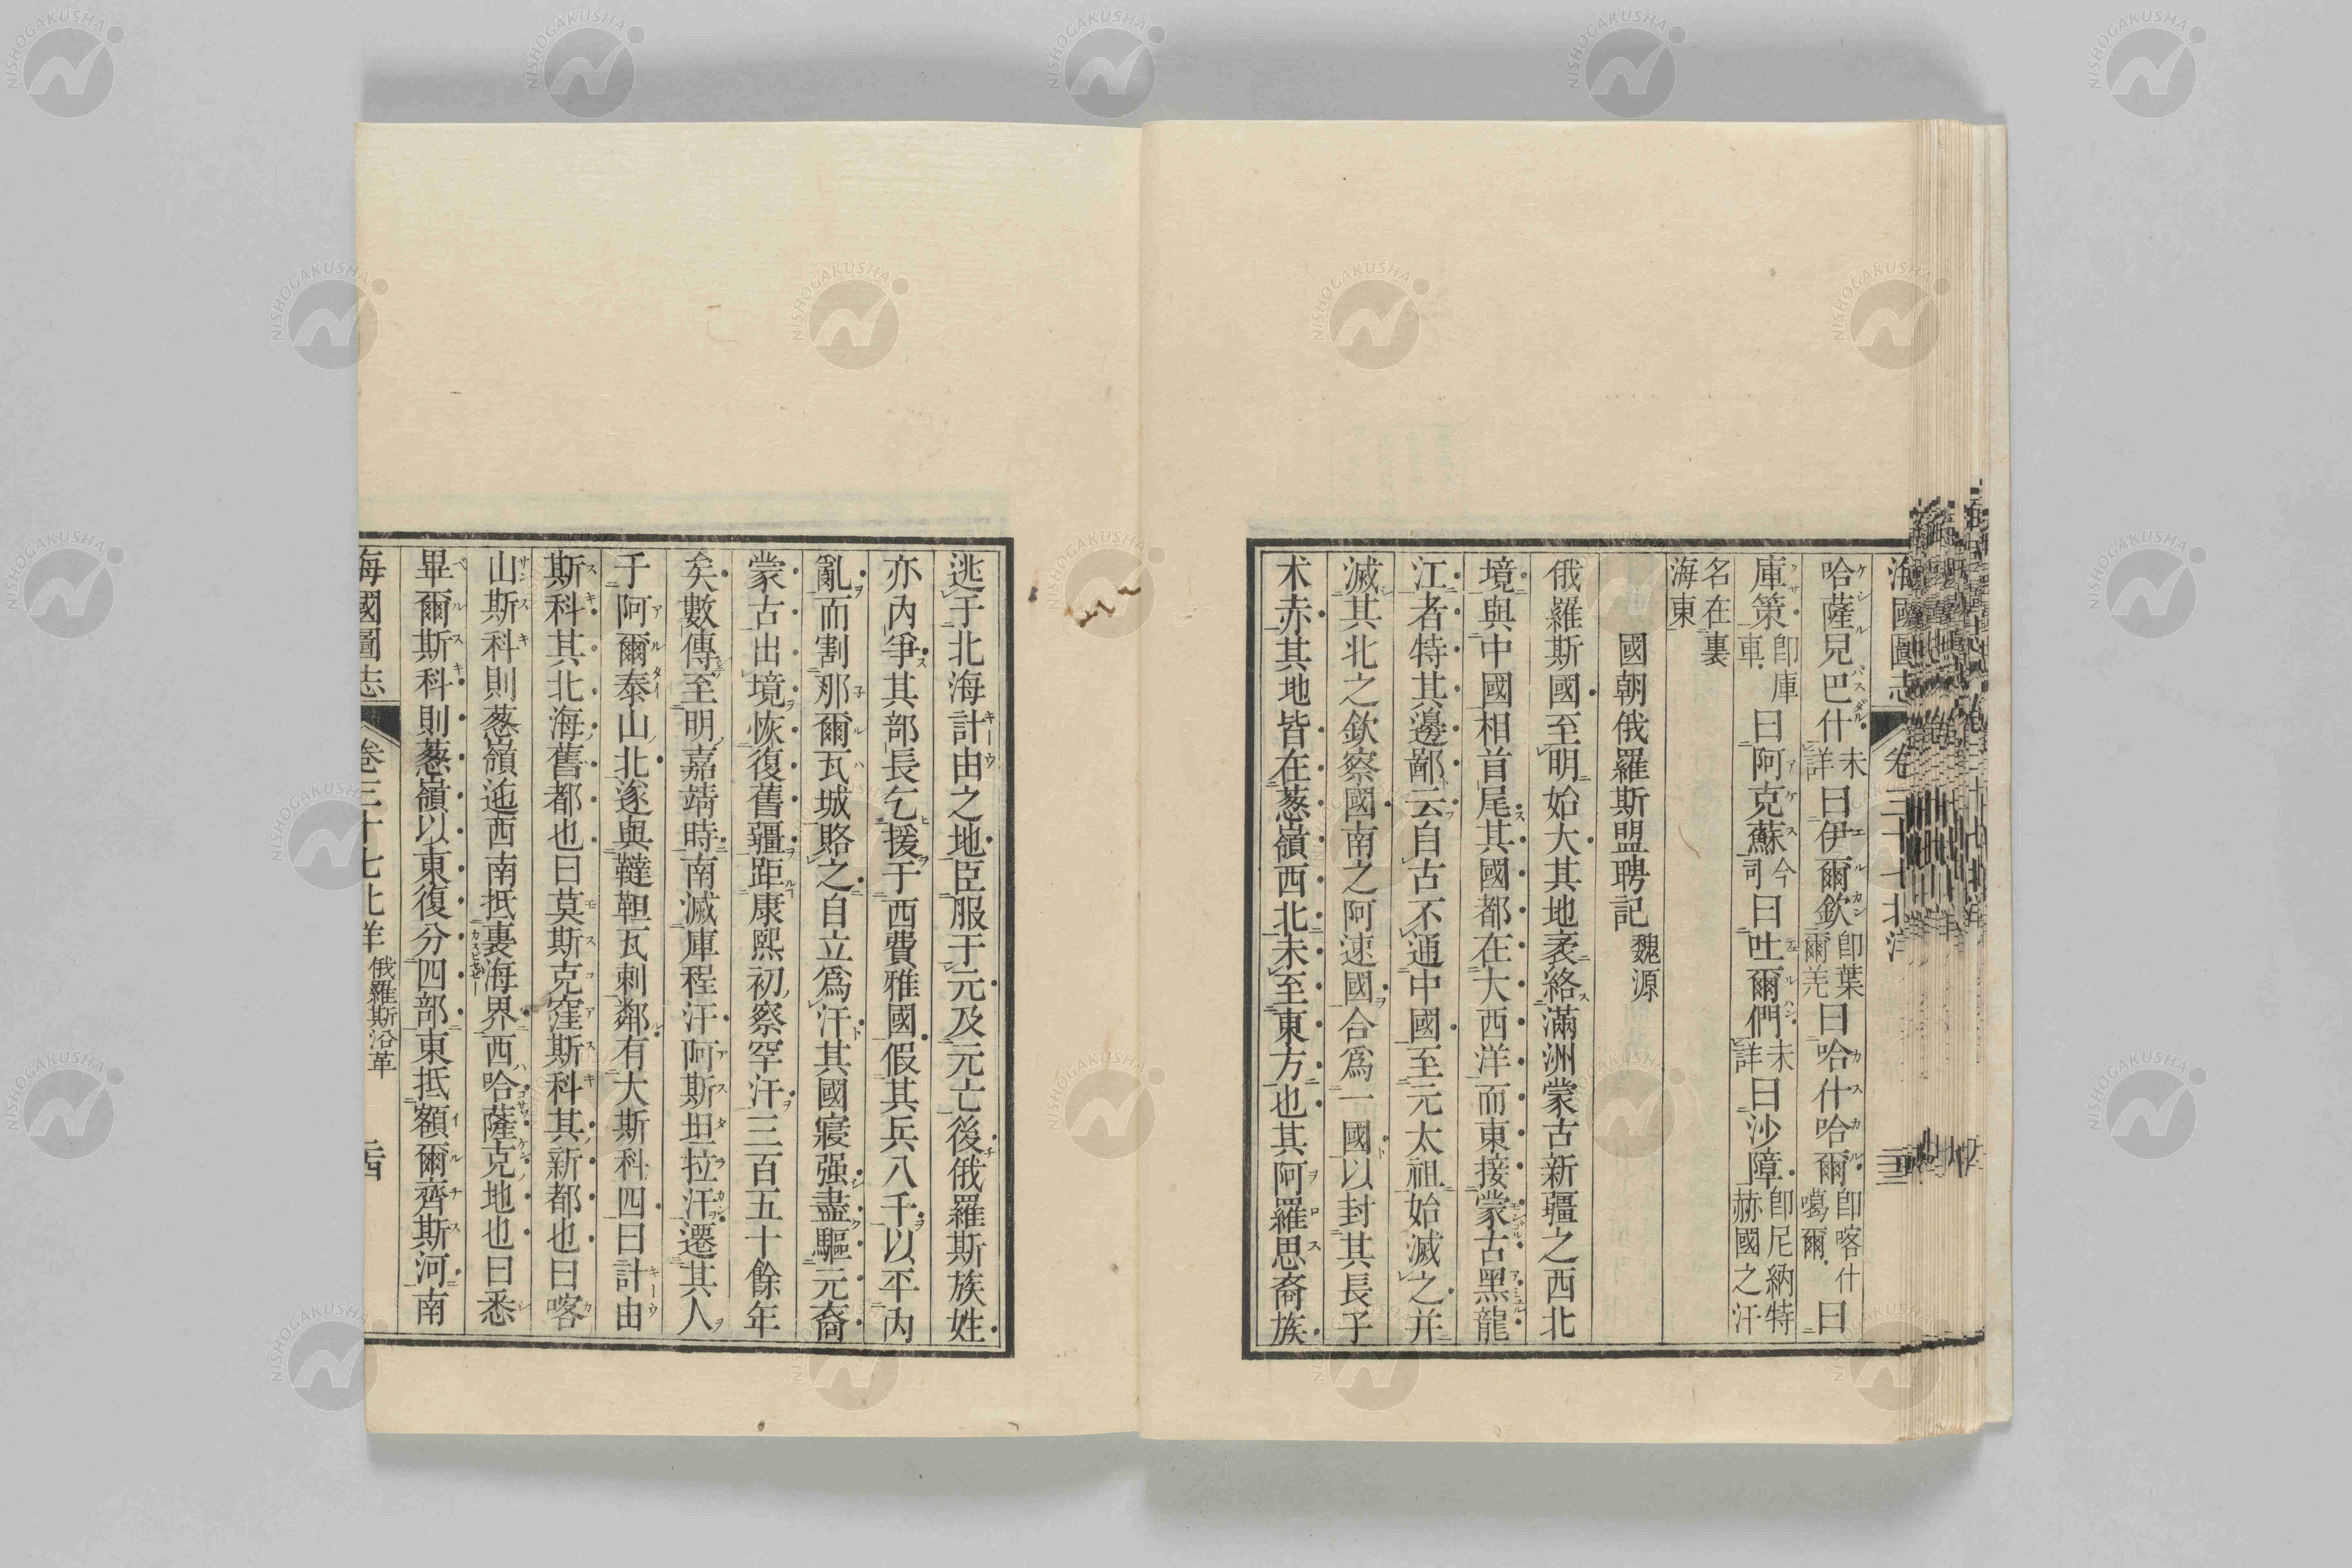 海國圖志 卷三十七北洋
哈薩見巴什未詳曰伊爾欽卽葉爾羌曰哈什哈爾卽喀什噶爾曰
庫策卽庫車曰阿克蘇今司曰吐爾們未詳曰沙障卽尼納特赫國之汗
名在裏海東
國朝俄羅斯盟聘記 魏源
俄羅斯國至明始大其地袤絡滿洲蒙古新疆之西北
境與中國相首尾其國都在大西洋而東接蒙古黑龍
江者特其邊鄙云自古不通中國至元太祖始滅之并
滅其北之欽察國南之阿速國合爲一國以封其長子
朮赤其地皆在葱嶺西北未至東方也其阿羅思裔族
逃于北海計由之地臣服于元及元亡後俄羅斯族姓
亦內爭其部長乞援于西費雅國假其兵八千以平內
亂而割那爾瓦城賂之自立爲汗其國寢强盡驅元裔
蒙古出境恢復舊疆距康熙初察罕汗三百五十餘年
矣數傳至明嘉靖時南滅庫程汗阿斯坦拉汗遷其人
于阿爾泰山北遂與韃靼瓦剌鄰有大斯科四曰計由
斯科其北海舊都也曰莫斯克窪斯科其新都也曰喀
山斯科則葱嶺迤西南抵裏海界西哈薩克地也曰悉
畢爾斯科則葱嶺以東復分四部東抵額爾齊斯河南
海國圖志 卷三十七北洋 俄羅斯沿革
NISHOGAKUSHA